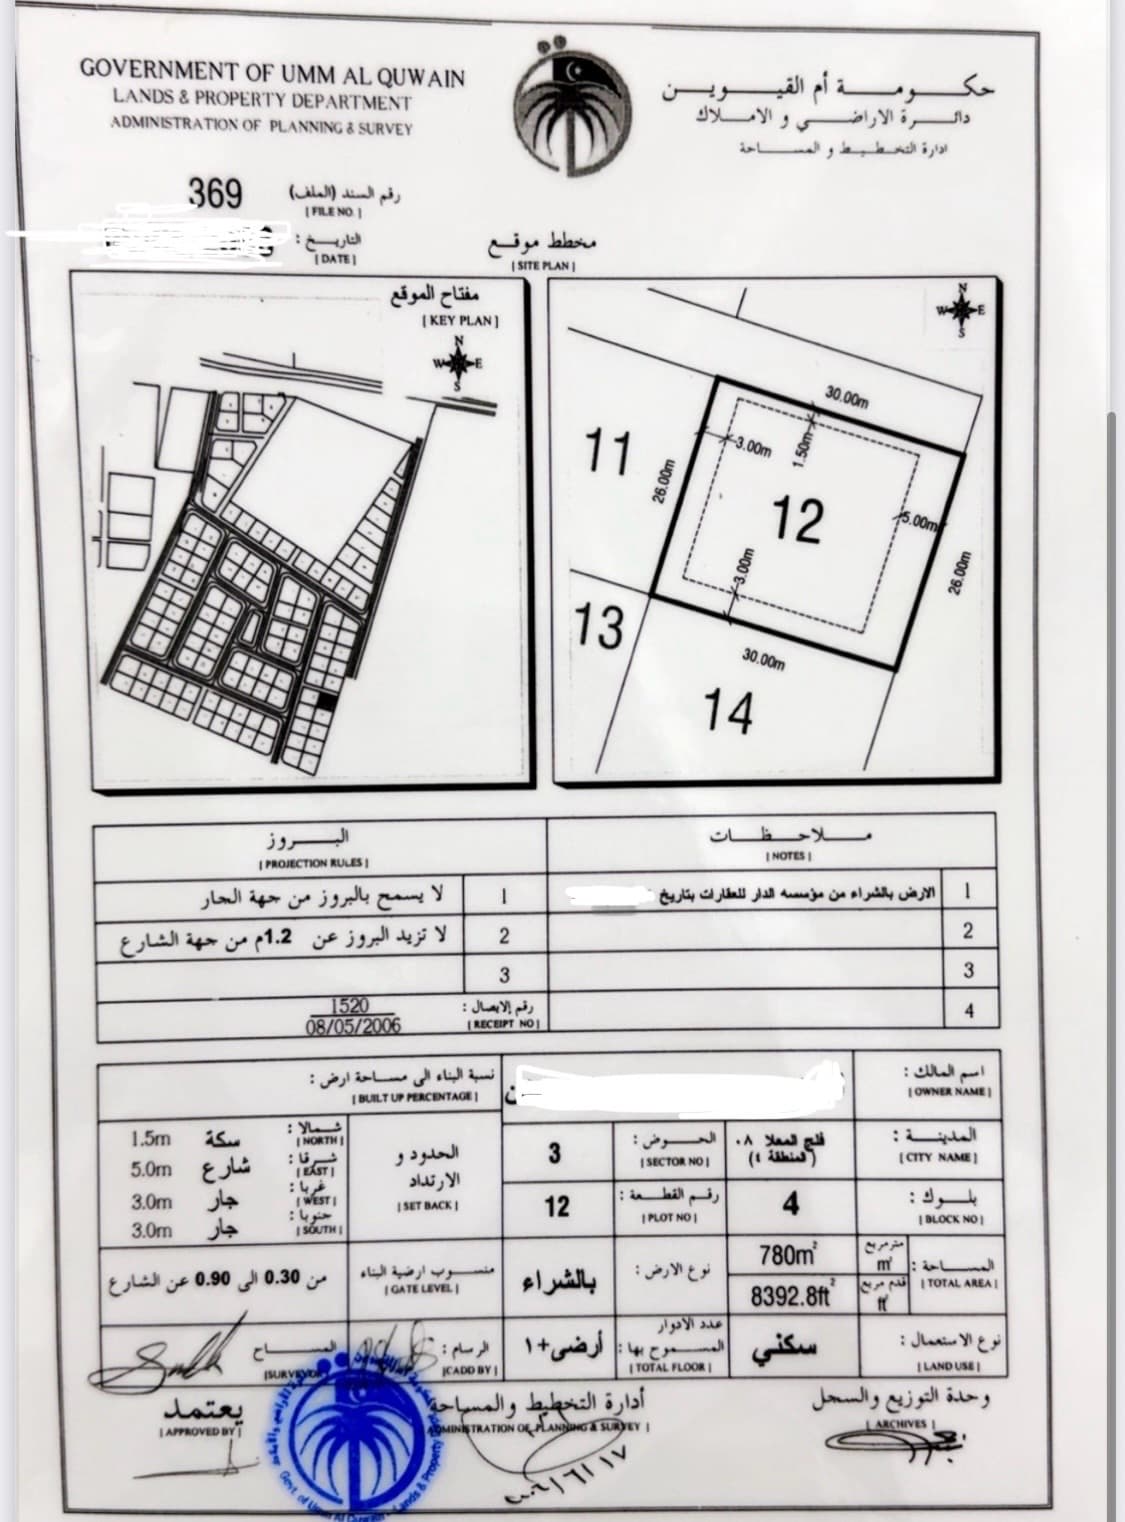 GOVERNMENT OF UMM AL QUWAIN
LANDS & PROPERTY DEPARTMENT
ADMINISTRATION OF PLANNING & SURVEY
حكومة أم القيوين
دائرة الاراضي و الاملاك
ادارة التخطيط و المساحة
369
رقم السند (الملف)
[ FILE NO. ]
التاريخ :
[ DATE ]
مخطط موقع
[ SITE PLAN ]
مفتاح الموقع
[ KEY PLAN ]
N
W E
S
N
W E
S
30.00m
11
3.00m
1.50m
26.00m
12
5.00m
3.00m
26.00m
13
30.00m
14
البروز
[ PROJECTION RULES ]
ملاحظات
[ NOTES ]
لا يسمح بالبروز من جهة الجار
1
الارض بالشراء من مؤسسه الدار للعقارات بتاريخ
1
لا تزيد البروز عن 1.2م من جهة الشارع
2
2
3
3
1520
08/05/2006
رقم الايصال :
[ RECEIPT NO ]
4
نسبة البناء الى مساحة ارض :
[ BUILT UP PERCENTAGE ]
اسم المالك :
[ OWNER NAME ]
1.5m سكة شمالا :
[ NORTH ]
5.0m شارع شرقا :
[ EAST ]
3.0m جار غربا :
[ WEST ]
3.0m جار جنوبا :
[ SOUTH ]
الحدود و
الارتداد
[ SET BACK ]
3
الحوض :
[ SECTOR NO ]
فلج المعلا ٠٨
(المنطقة ٤)
المدينة :
[ CITY NAME ]
12
رقم القطعة :
[ PLOT NO ]
4
بلوك :
[ BLOCK NO ]
من 0.30 الى 0.90 عن الشارع
منسوب ارضية البناء
[ GATE LEVEL ]
بالشراء
نوع الارض :
780m²
مترمربع
m²
8392.8ft²
قدم مربع
ft²
المساحة :
[ TOTAL AREA ]
المساح
[SURVEYOR]
الرسام :
[CADD BY]
أرضي+١
عدد الادوار
المسموح بها :
[ TOTAL FLOOR ]
سكني
نوع الاستعمال :
[ LAND USE ]
يعتمد
[ APPROVED BY ]
أدارة التخطيط والمساحة
ADMINISTRATION OF PLANNING & SURVEY ]
وحدة التوزيع والسجل
[ ARCHIVES ]
Govt. of Umm Al Quwain - Lands & Property